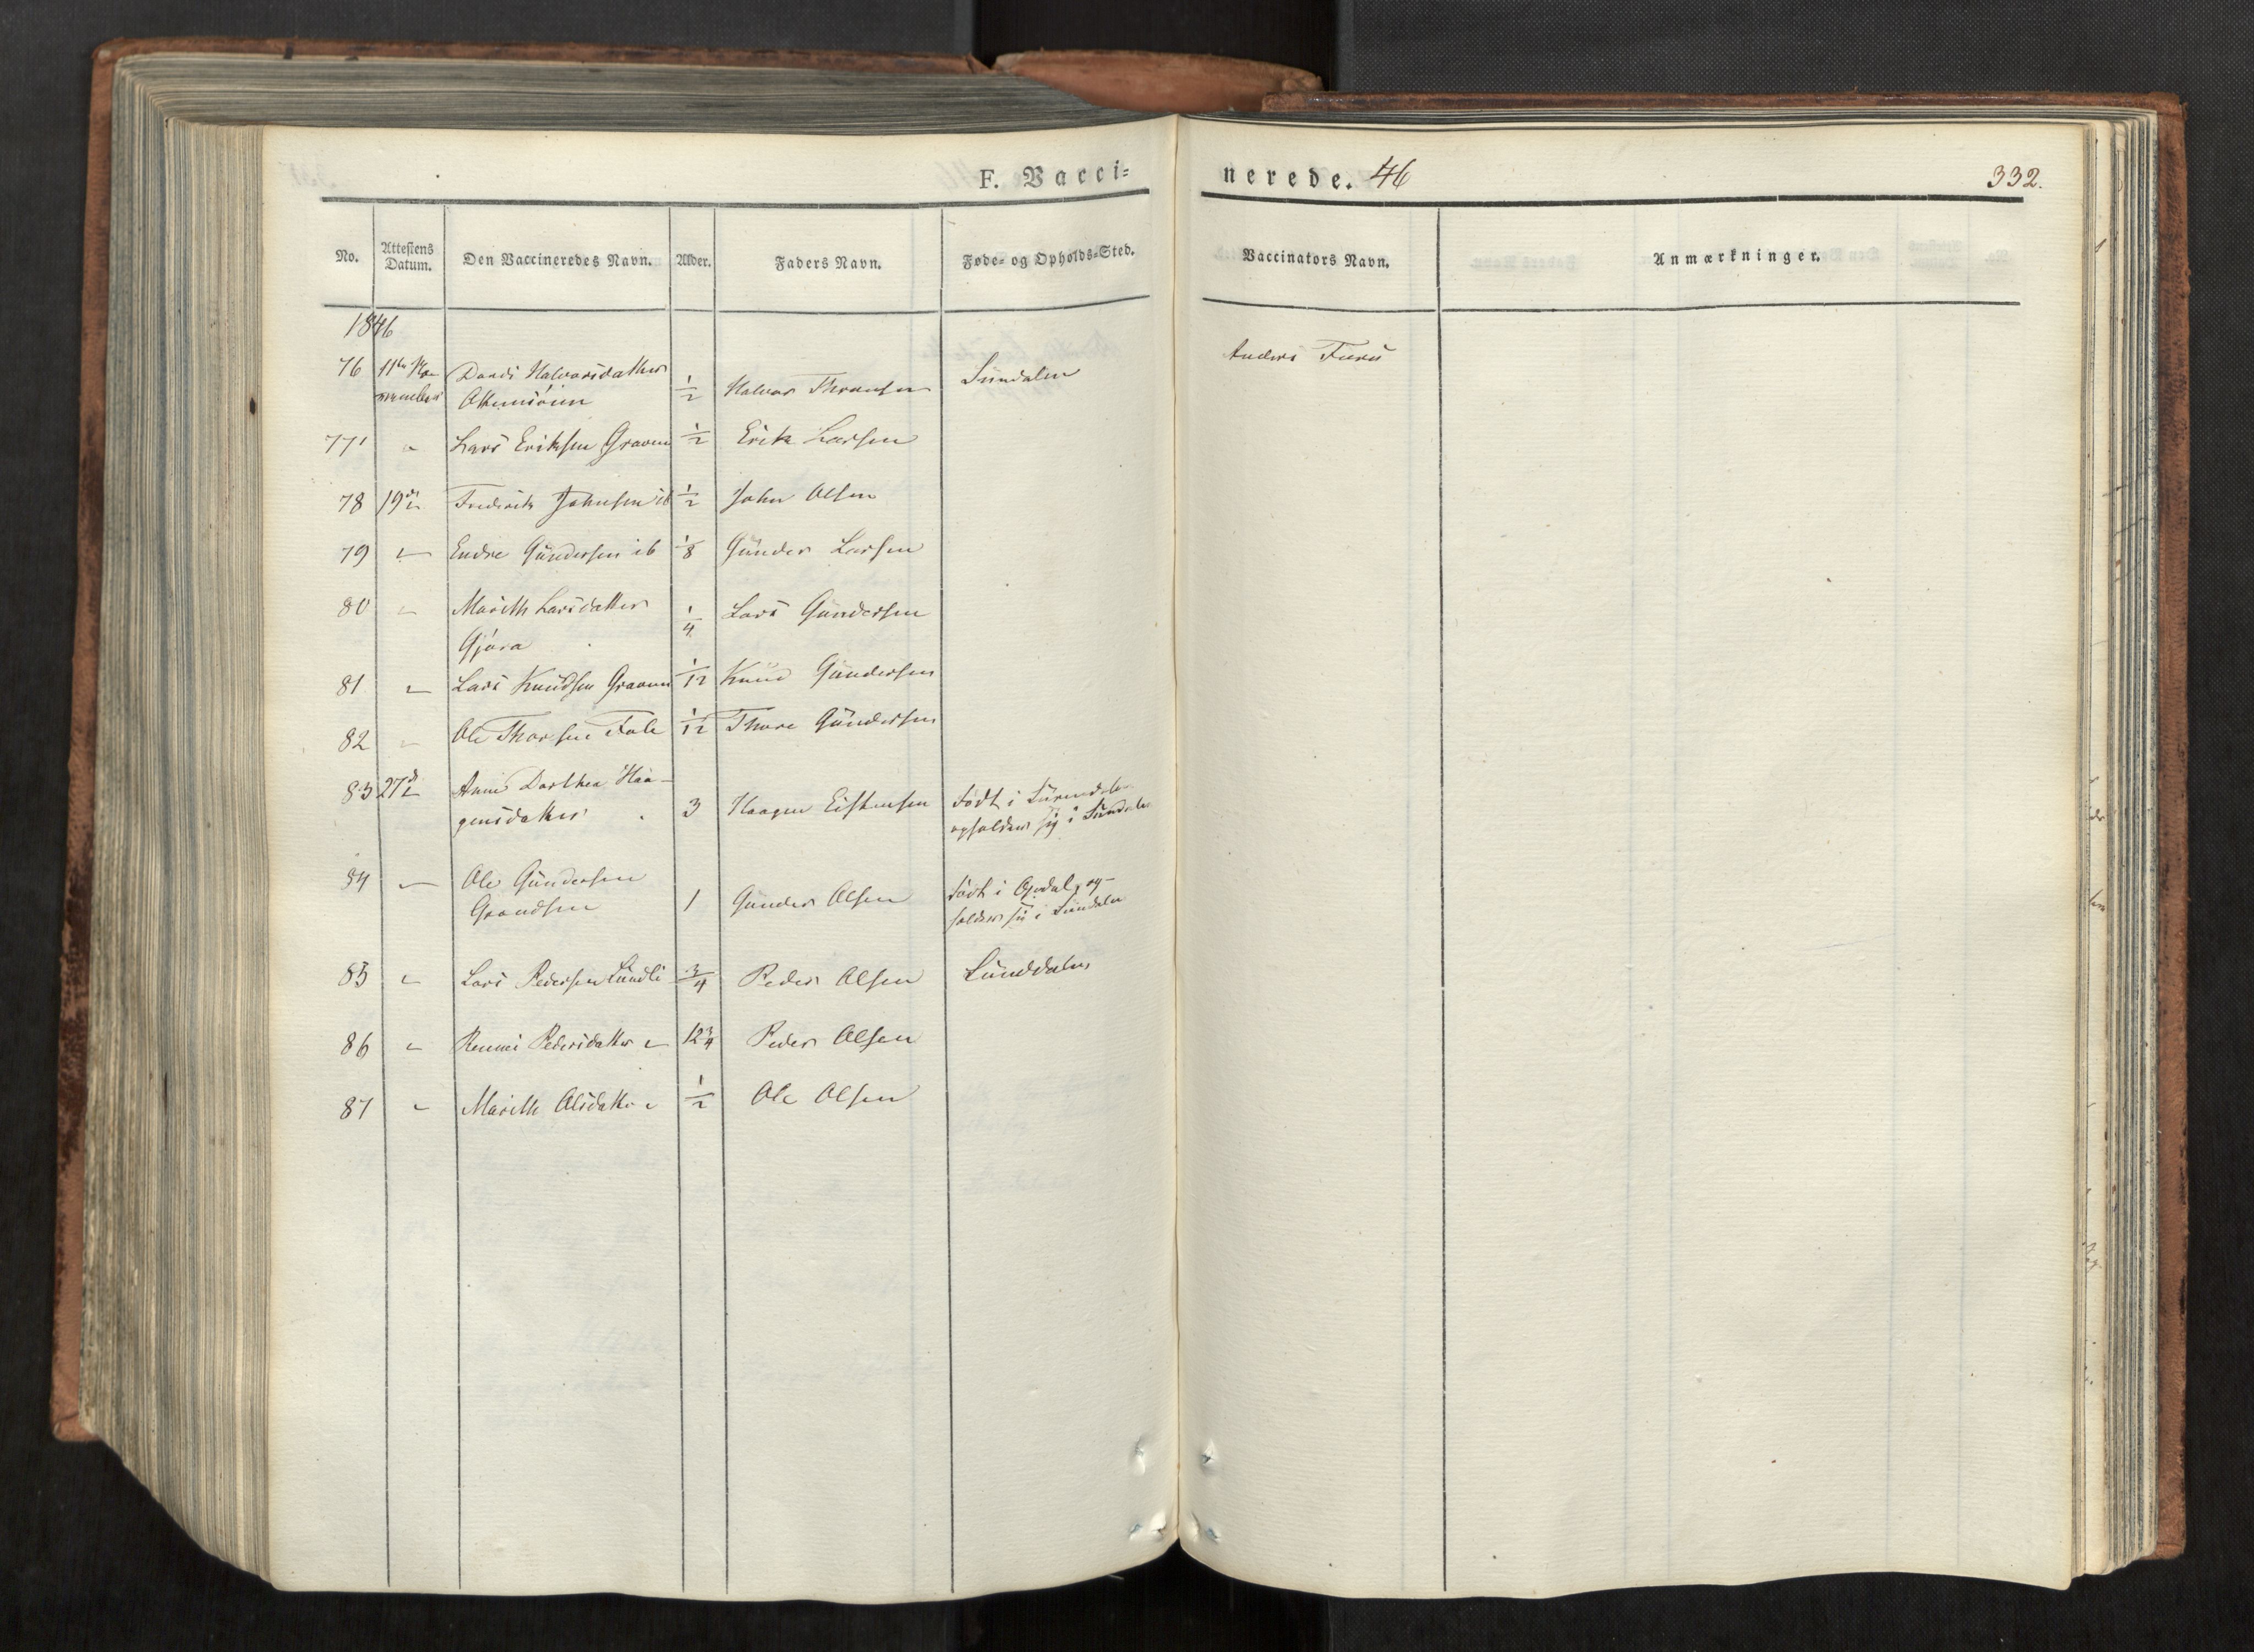 F. Vacci=
nerede. 46
332.
No. Attestens Datum. Den Vaccineredes Navn. Alder. Faders Navn. Føde- og Opholds-Sted. Vaccinators Navn. Anmærkninger.
1846
76 11te No- Dordi Halvorsdatter Sundalen Anders Furu
vembr 1/2 Halvor
77 " Lars Eriksen Graven 1/2 Erik Larsen
78 19 d Frederik Johnsen ib 1/2 John Olsen
79 " Endre Gundersen ib 1/8 Gunder Larsen
80 " Marith Larsdatter 1/4 Lars Gundersen
Gjøra
81 " Lars Knudsen Graven 1/12 Knud Gundersen
82 " Ole Thorsen Fale 1/12 Thore Gundersen
83 27 d Anne Dorthea Haa- født i Surendalen
gensdatter 3 Haagen Eistensen opholder sig i Sundalen
84 " Ole Gundersen født i Opdal, op-
1 Gunder Olsen holder sig i Sundalen
85 " Lars Pedersen Lundli 3/4 Peder Olsen Sunddalen
86 " Pedersdatter " 12 3/4 Peder Olsen
87 " Marith Olsdatter " 1/2 Ole Olsen